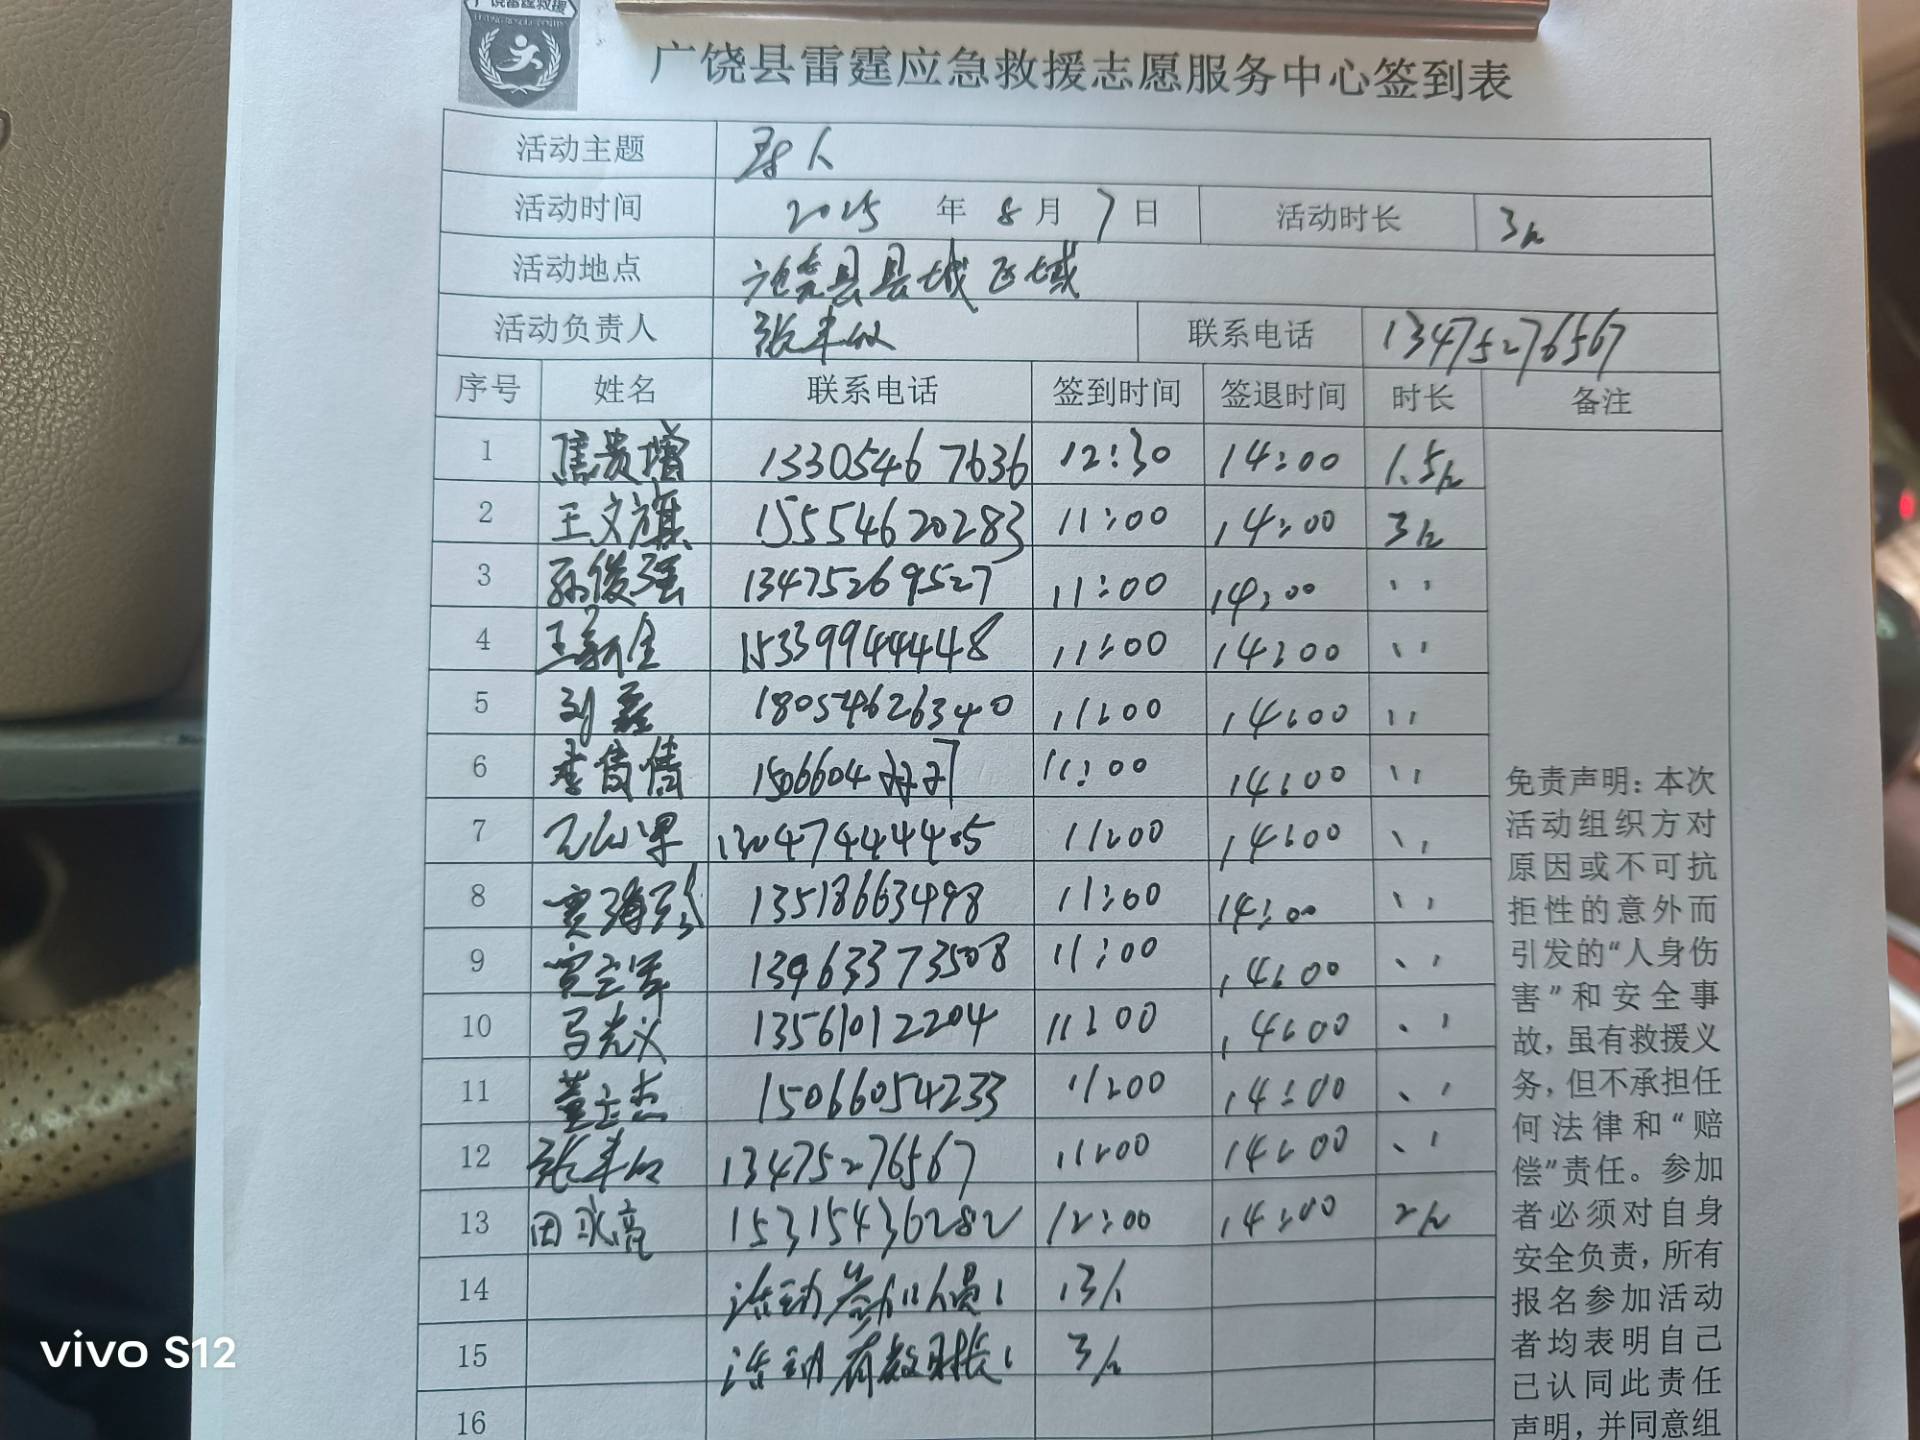 广饶雷霆救援
广饶县雷霆应急救援志愿服务中心签到表
活动主题 寻人
活动时间 2025 年 8 月 7 日 活动时长 3h
活动地点 广饶县县城区域
活动负责人 张丰收 联系电话 13475276567
序号 姓名 联系电话 签到时间 签退时间 时长 备注
1 焦贵增 13305467636 12:30 14:00 1.5h
2 王文旗 15554620283 11:00 14:00 3h
3 孙俊强 13475269527 11:00 14:00 〃
4 王新全 15339944448 11:00 14:00 〃
5 刘磊 18054626340 11:00 14:00 〃
6 李倩倩 1506604 11:00 14:00 〃
7 13047444405 11:00 14:00 〃
8 贾海珍 13518663498 11:00 14:00 〃
9 贾立军 13963373508 11:00 14:00 〃
10 马光义 13561012204 11:00 14:00 〃
11 董士杰 15066054233 11:00 14:00 〃
12 张丰收 13475276567 11:00 14:00 〃
13 田永亮 15315436282 12:00 14:00 2h
14 活动参加人员: 13人
15 活动有效时长: 3h
16
免责声明:本次
活动组织方对
原因或不可抗
拒性的意外而
引发的“人身伤
害”和安全事
故,虽有救援义
务,但不承担任
何法律和“赔
偿”责任。参加
者必须对自身
安全负责,所有
报名参加活动
者均表明自己
已认同此责任
声明,并同意组
vivo S12